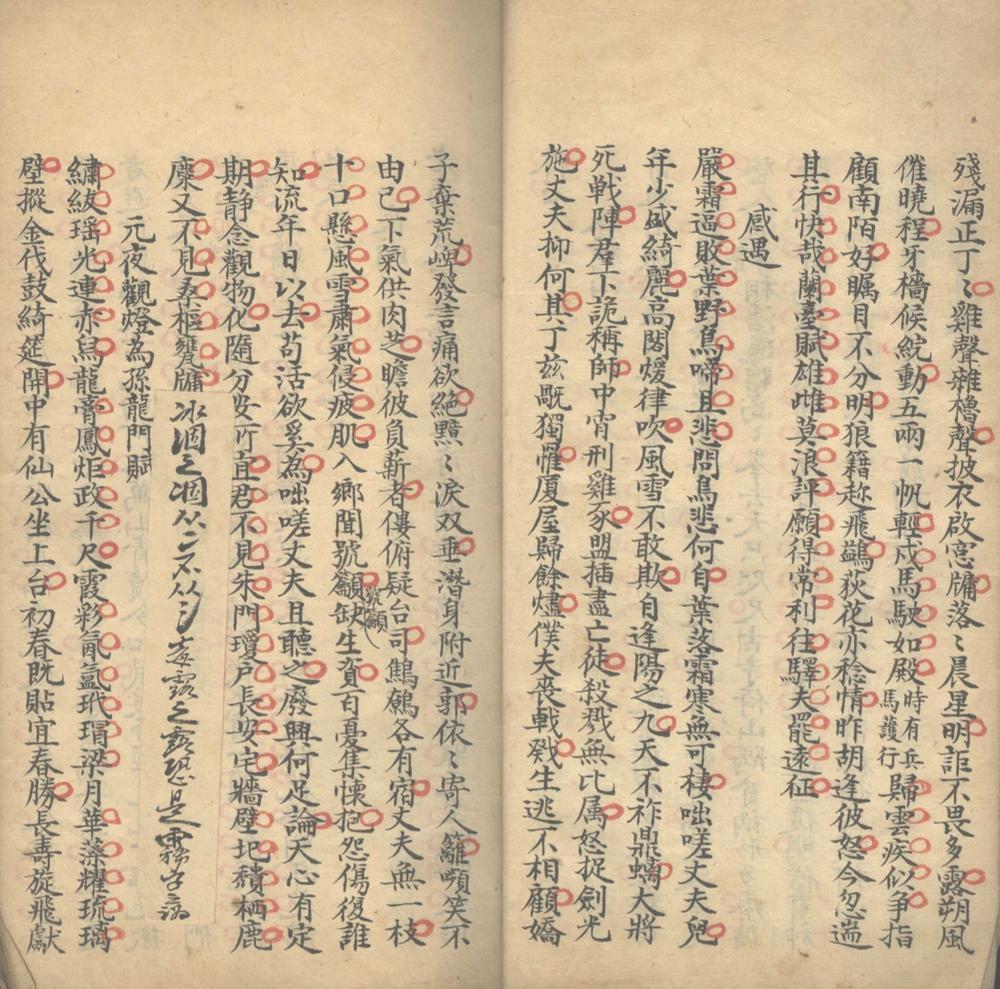 殘漏正丁丁雞聲雜櫓聲披衣啟窓牖落落晨星明詎不畏多露朔風
催曉程牙檣候綄動五兩一帆輕戍馬駛如殿時有兵馬護行歸雲疾似争指
顧南陌好矚目不分明狼籍趂飛鷁荻花亦稔情昨胡逢彼怒今忽遄
其行快哉蘭臺賦雄雌莫浪評願得常利往驛夫罷遠征
感遇
嚴霜逼敗葉野鳥啼且悲問鳥悲何自葉落霜寒無可棲咄嗟丈夫兒
年少盛綺麗高閣煖律吹風雪不敢欺自逢陽之九天不祚鼎螭大將
死戰陣羣下詭稱師中宵刑雞豕盟插盡亡徒殺戮無比属怒捉劍光
施丈夫抑何其丁兹戬獨罹厦屋歸餘燼僕夫喪戟戣生逃不相顧嬌
子棄荒﨑發言痛欲絕黙黙淚双垂潛身附近郭依依寄人籬嚬笑不
由己下氣供肉芝瞻彼負薪者僂俯疑台司鷦鷯各有宿丈夫無一枝
十口懸風雪肅氣侵疲肌入鄉聞號籲缺生資百憂集懷抱怨傷復誰
知流年日以去苟活欲奚為咄嗟丈夫且聽之廢興何足論天心有定
期静念觀物化隨分安所宜君不見朱門瓊户長安宅牆壁圮穨栖鹿
麋又不見桑樞甕牖
冰涸之涸从冫不从氵 多露之露恐是霧字病
元夜觀燈為孫龍門賦
繡紱瑶光連赤舄龍膏鳳炬政千尺霞彩氤氲玳瑁梁月華藻耀琉璃
壁摐金伐鼓綺筵開中有仙公坐上台初春既貼宜春勝長壽旋飛獻